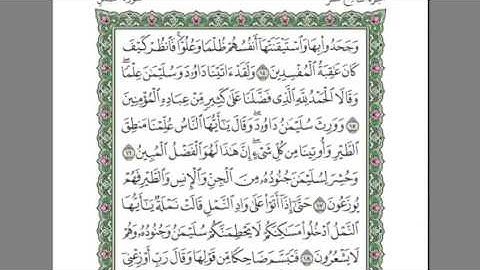 وَجَحَدُوا۟ بِهَا وَٱسْتَيْقَنَتْهَآ أَنفُسُهُمْ ظُلْمًا وَعُلُوًّا ۚ فَٱنظُرْ كَيْفَ
كَانَ عَٰقِبَةُ ٱلْمُفْسِدِينَ ١٤ وَلَقَدْ ءَاتَيْنَا دَاوُۥدَ وَسُلَيْمَٰنَ عِلْمًا ۖ
وَقَالَا ٱلْحَمْدُ لِلَّهِ ٱلَّذِى فَضَّلَنَا عَلَىٰ كَثِيرٍ مِّنْ عِبَادِهِ ٱلْمُؤْمِنِينَ
١٥ وَوَرِثَ سُلَيْمَٰنُ دَاوُۥدَ ۖ وَقَالَ يَٰٓأَيُّهَا ٱلنَّاسُ عُلِّمْنَا مَنطِقَ
ٱلطَّيْرِ وَأُوتِينَا مِن كُلِّ شَىْءٍ ۖ إِنَّ هَٰذَا لَهُوَ ٱلْفَضْلُ ٱلْمُبِينُ ١٦
وَحُشِرَ لِسُلَيْمَٰنَ جُنُودُهُۥ مِنَ ٱلْجِنِّ وَٱلْإِنسِ وَٱلطَّيْرِ فَهُمْ
يُوزَعُونَ ١٧ حَتَّىٰٓ إِذَآ أَتَوْا۟ عَلَىٰ وَادِ ٱلنَّمْلِ قَالَتْ نَمْلَةٌ يَٰٓأَيُّهَا
ٱلنَّمْلُ ٱدْخُلُوا۟ مَسَٰكِنَكُمْ لَا يَحْطِمَنَّكُمْ سُلَيْمَٰنُ وَجُنُودُهُۥ وَهُمْ
لَا يَشْعُرُونَ ١٨ فَتَبَسَّمَ ضَاحِكًا مِّن قَوْلِهَا وَقَالَ رَبِّ أَوْزِعْنِىٓ